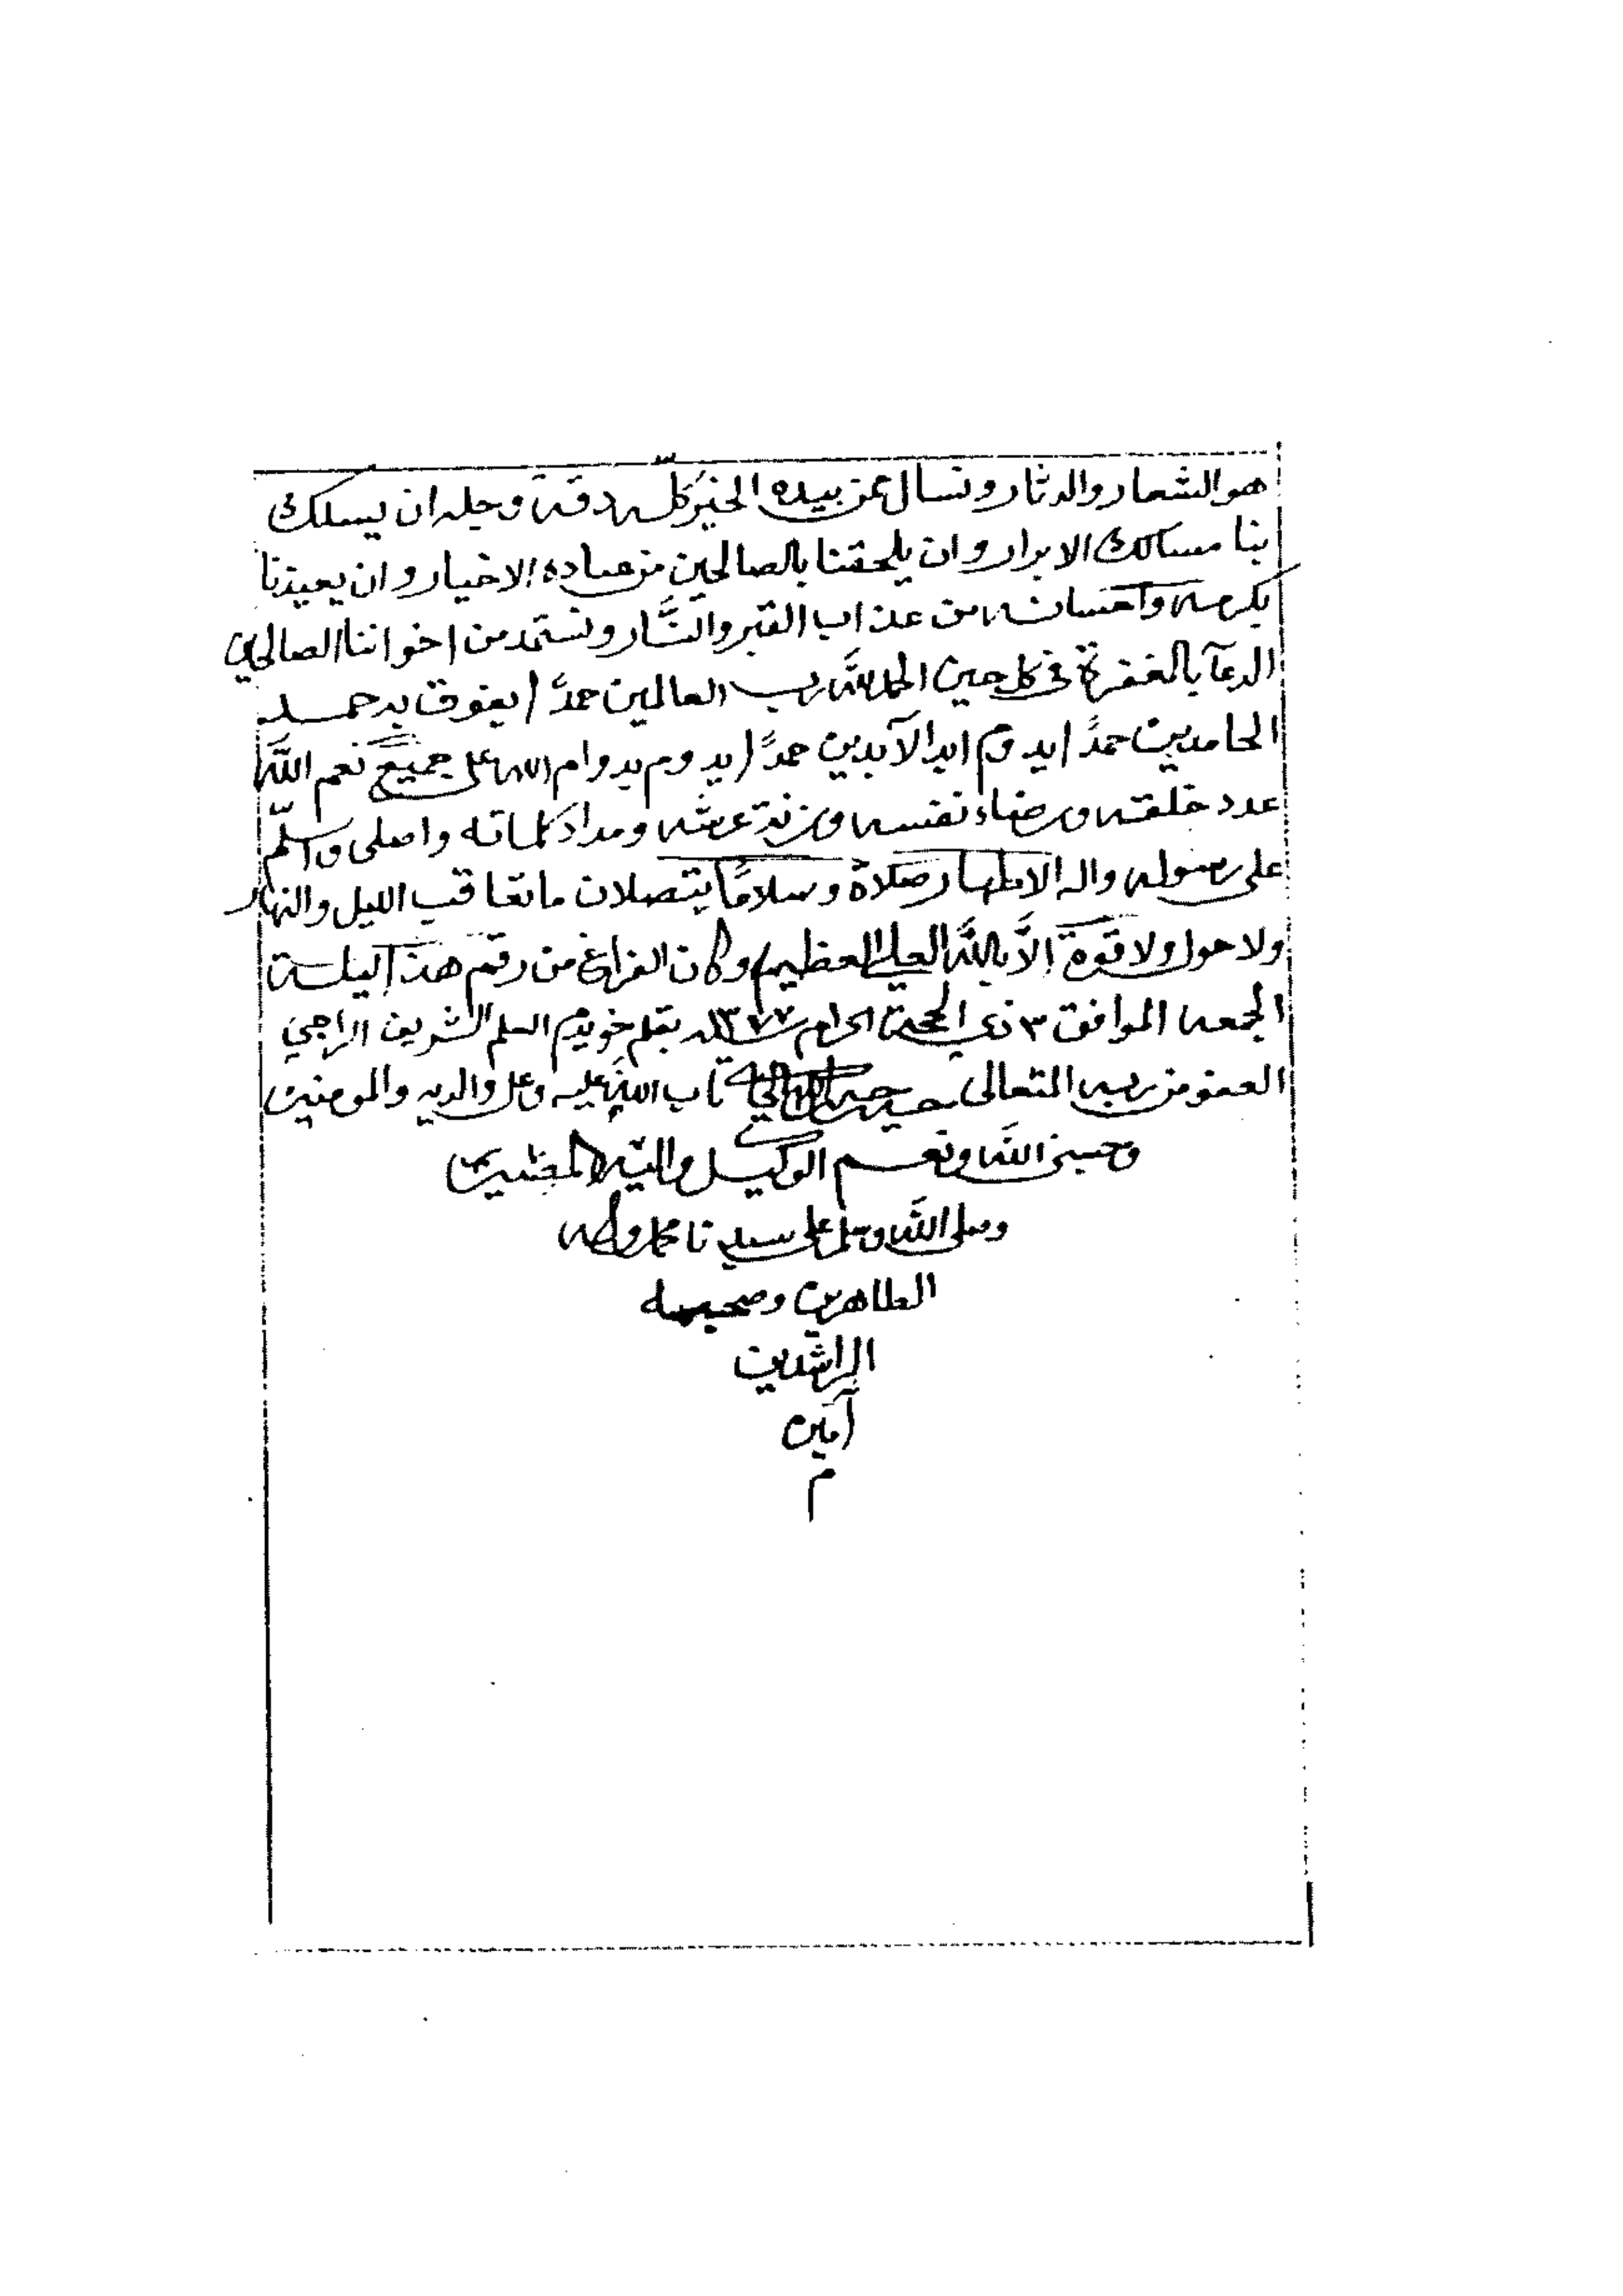 هو الشعار والدثار ونسال عمن بيده الخير كله دقه وجله ان يسلك
بنا مسالك الابرار وان يلحقنا بالصالحين من عباده الاخيار وان يعيذنا
بكرمه واحسانه من عذاب القبر والنَّار ونستمد من اخواننا الصالحين
الدعآ بالمغفرة في كل حين الحمد لله رب العالمين حمدًا يفوق به حمد
الحامدين حمدًا يدوم ابد الآبدين حمدًا يدوم بدوام الله على جميع نعم الله
عدد خلقه ورضاء نفسه وزنة عرشه ومداد كلماته واصلي واسلّم
على رسوله واله الاطهار صلاة وسلامًا يتصلان ما تعاقب الليل والنهار
ولا حول ولا قوة الَّا بالله العلي العظيم وكان الفراغ من رقم هذا ليلة
الجمعه الموافق ٣ ذي الحجة الحرام سنة ١٣٧٧ بقلم خويدم العلم الشريف الراجي
العفو من ربه المتعالى تاب الله عليه وعلى والديه والمومنين
وحسبي الله ونعم الوكيل واليه المصير
وصلى الله وسلم على سيدنا محمد واله
الطاهرين وصحبه
الراشدين
آمين
م